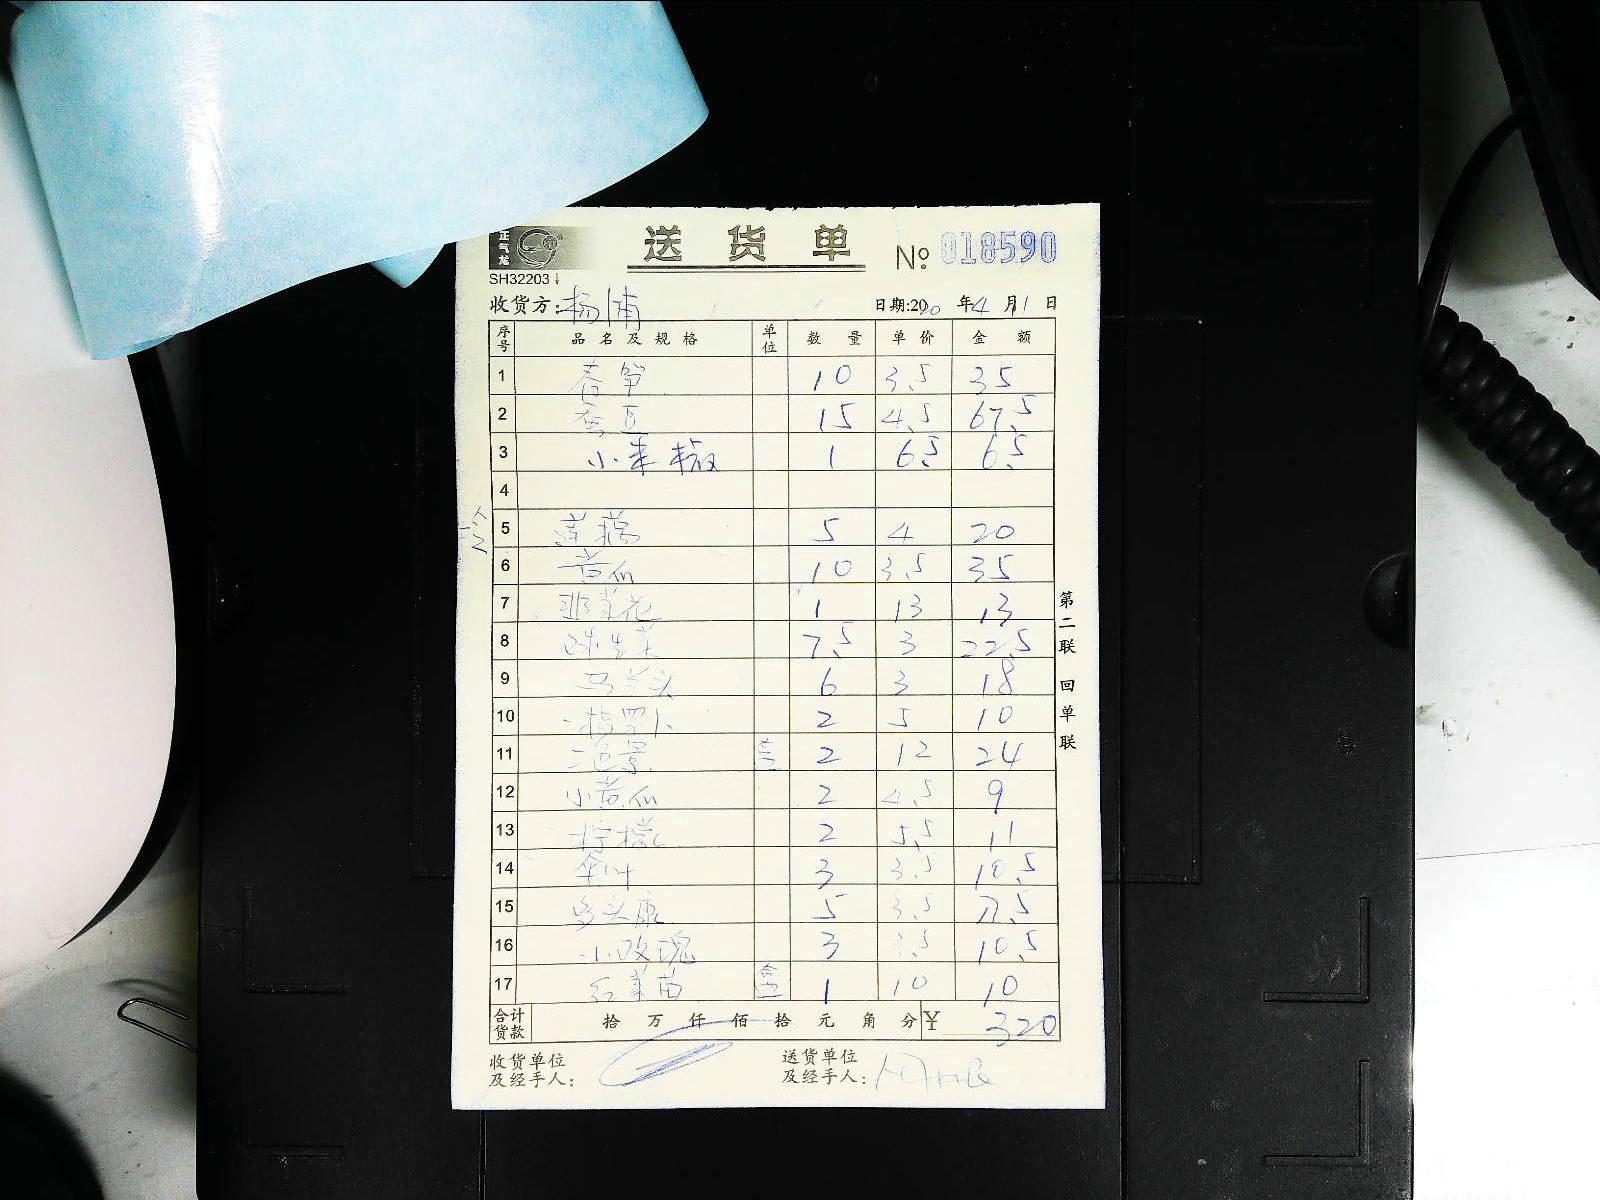 正气龙
送货单 № 018590
SH32203
收货方: 杨浦 日期:2020 年 4 月 1 日
序号 品名及规格 单位 数量 单价 金额
1 春笋 10 3.5 35
2 蚕豆 15 4.5 67.5
3 小米椒 1 6.5 6.5
4
5 莲藕 5 4 20
6 黄瓜 10 3.5 35
7 韭菜花 1 13 13
8 球生菜 7.5 3 22.5
9 马兰头 6 3 18
10 指罗卜 2 5 10
11 三色堇 2 12 24
12 小黄瓜 2 4.5 9
13 柠檬 2 5.5 11
14 3 3.5 10.5
15 5 3.5 17.5
16 小玫瑰 3 3.5 10.5
17 红菜苗 盒 1 10 10
合计货款 拾 万 仟 佰 拾 元 角 分 ¥ 320
收货单位及经手人:
送货单位及经手人:
第二联 回单联